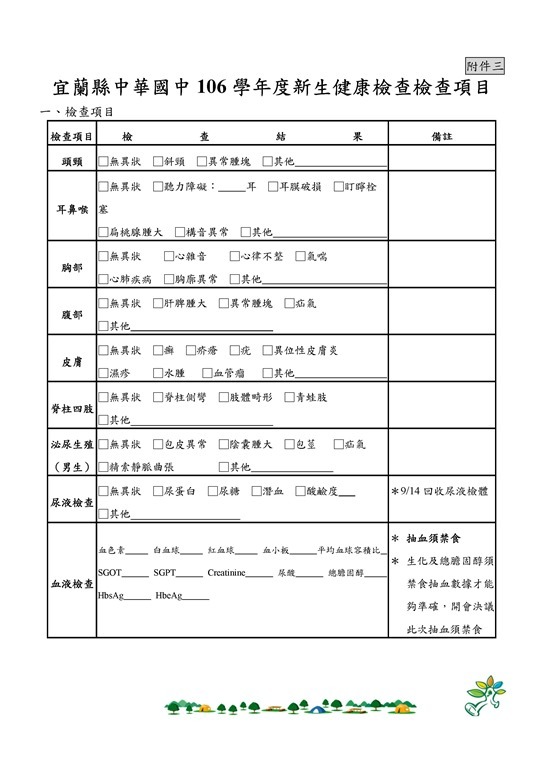 附件三
宜蘭縣中華國中 106 學年度新生健康檢查檢查項目
一、檢查項目
檢查項目 檢 查 結 果 備註
頭頸 □無異狀 □斜頸 □異常腫塊 □其他
耳鼻喉 □無異狀 □聽力障礙：_____耳 □耳膜破損 □耵聹栓
塞
□扁桃腺腫大 □構音異常 □其他
胸部 □無異狀 □心雜音 □心律不整 □氣喘
□心肺疾病 □胸廓異常 □其他
腹部 □無異狀 □肝脾腫大 □異常腫塊 □疝氣
□其他
皮膚 □無異狀 □癬 □疥瘡 □疣 □異位性皮膚炎
□濕疹 □水腫 □血管瘤 □其他
脊柱四肢 □無異狀 □脊柱側彎 □肢體畸形 □青蛙肢
□其他
泌尿生殖 □無異狀 □包皮異常 □陰囊腫大 □包莖 □疝氣
（男生） □精索靜脈曲張 □其他
尿液檢查 □無異狀 □尿蛋白 □尿糖 □潛血 □酸鹼度___ ＊9/14 回收尿液檢體
□其他
血液檢查
血色素_____ 白血球_____ 紅血球_____ 血小板_____平均血球容積比_
SGOT_____ SGPT_____ Creatinine_____ 尿酸_____ 總膽固醇_____
HbsAg______ HbeAg______
＊ 抽血須禁食
＊ 生化及總膽固醇須
禁食抽血數據才能
夠準確，開會決議
此次抽血須禁食